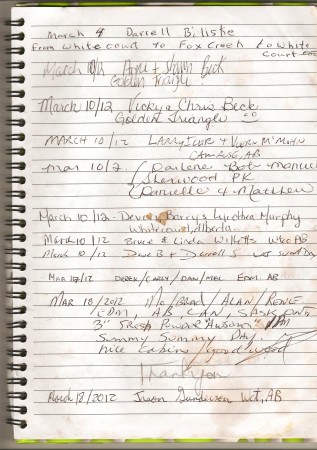 March 4 Darrell Biliske
from Whitecourt to Fox Creek to White
Court
March 10/12 Anne + Beck
Golden Triangle
March 10/12 Vicky & Chris Beck
Goldent Triangle
MARCH 10/12 LARRY + M
CAMROSE, AB
mar 10/2 (Darlene Bob
(Sherwood PK
(Danielle & Matthew
March 10/12 - Devin Barry & Lyndhea Murphy
Whitecourt, Alberta
March 10/12 Bruce & Linda Willetts Wtc AB
March 10/12 Dave B + Darrell S
MAR 18/12 DEREK/CARLY/DAN/MEL EDM. AB
MAR 18/2012 Mo/BRAD/ALAN/RENE
EDM, AB, CAN, SASK
3" Fresh Powder Awsom
Sunny Sunny DAY.
Nice Cabin / Good wood
Thankyou
March 18/2012 Jason Gunderson Wct, AB